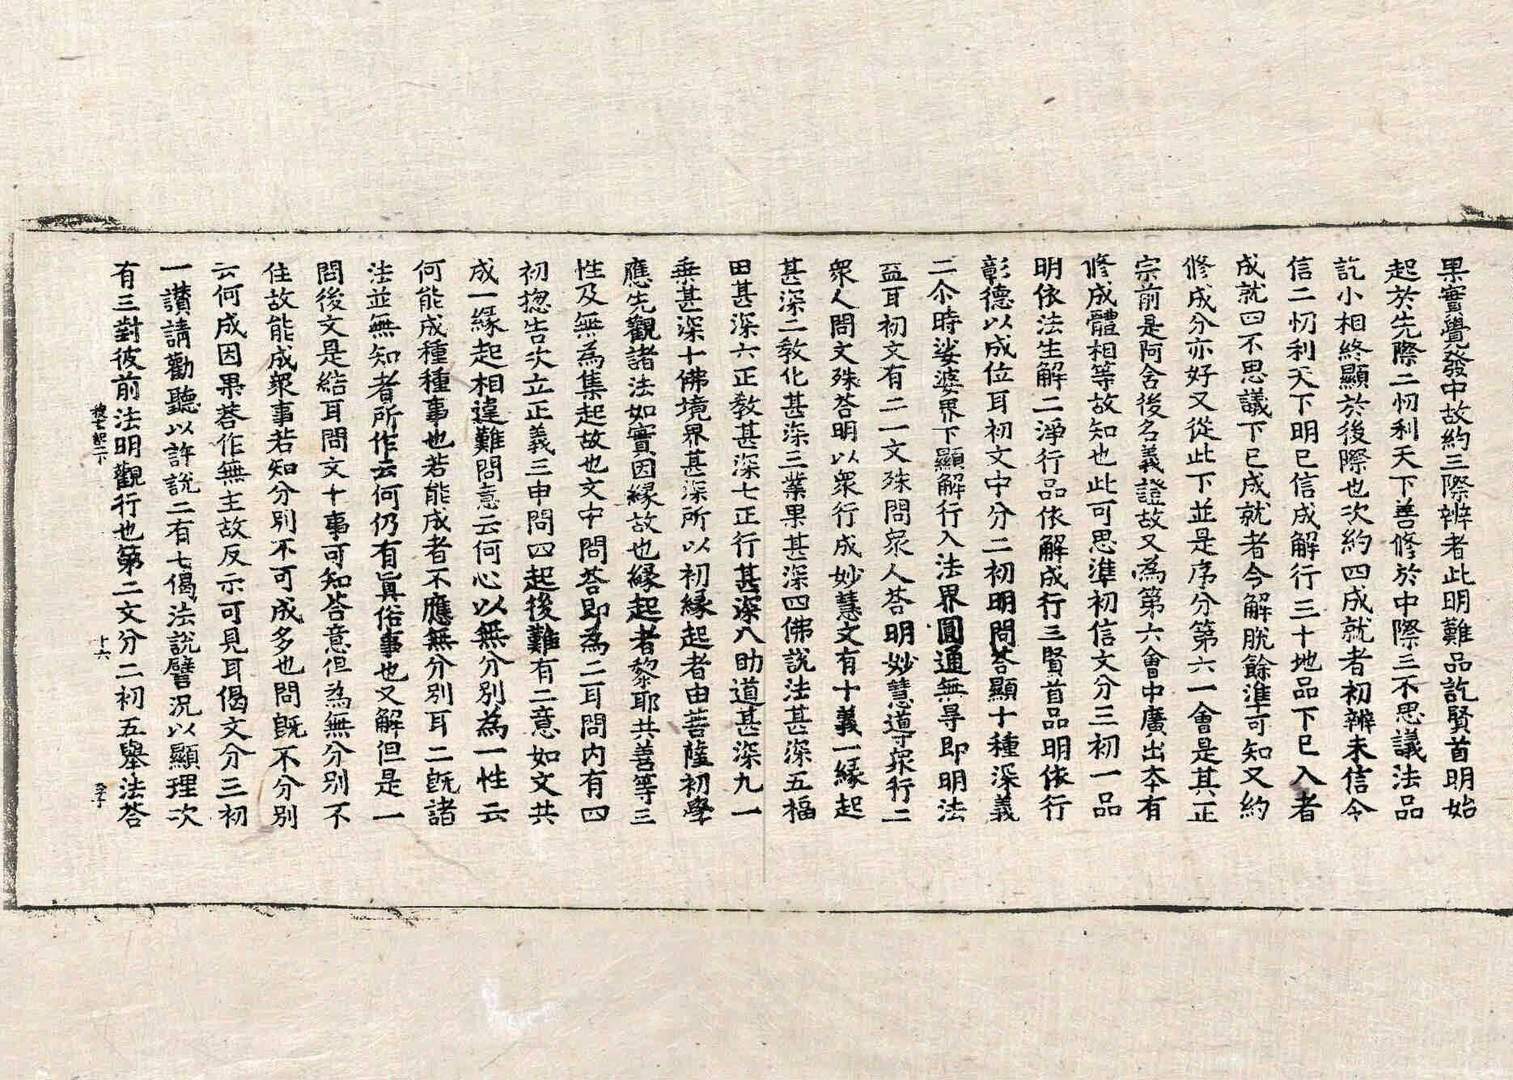 果實覺發中故約三際辨者此明難品訖賢首明始
起於先際二忉利天下善修於中際三不思議法品
訖小相終顯於後際也次約四成就者初辨未信令
信二忉利天下明已信成解行三十地品下已入者
成就四不思議下已成就者令解脫餘準可知又約
修成分亦好又從此下並是序分第六一會是其正
宗前是阿含後名義證故又為第六會中廣出本有
修成體相等故知也此可思準初信文分三初一品
明依法生解二淨行品依解成行三賢首品明依行
彰德以成位耳初文中分二初明問荅顯十種深義
二尒時娑婆界下顯解行入法界圓通無㝵即明法
益耳初文有二一文殊問衆人荅明妙慧導衆行二
衆人問文殊荅明以衆行成妙慧文有十義一緣起
甚深二敎化甚深三業果甚深四佛說法甚深五福
田甚深六正敎甚深七正行甚深八助道甚深九一
乗甚深十佛境界甚深所以初緣起者由菩薩初學
應先觀諸法如實因緣故也緣起者黎耶共善等三
性及無為集起故也文中問荅即為二耳問內有四
初揔告次立正義三申問四起後難有二意如文共
成一緣起相違難問意云何心以無分別為一性云
何能成種種事也若能成者不應無分別耳二旣諸
法並無知者所作云何仍有眞俗事也又解但是一
問後文是結耳問文十事可知荅意但為無分別不
住故能成衆事若知分別不可成多也問旣不分別
云何成因果荅作無主故反示可見耳偈文分三初
一讚請勸聽以許說二有七偈法說譬況以顯理次
有三對彼前法明觀行也第二文分二初五舉法荅
十六